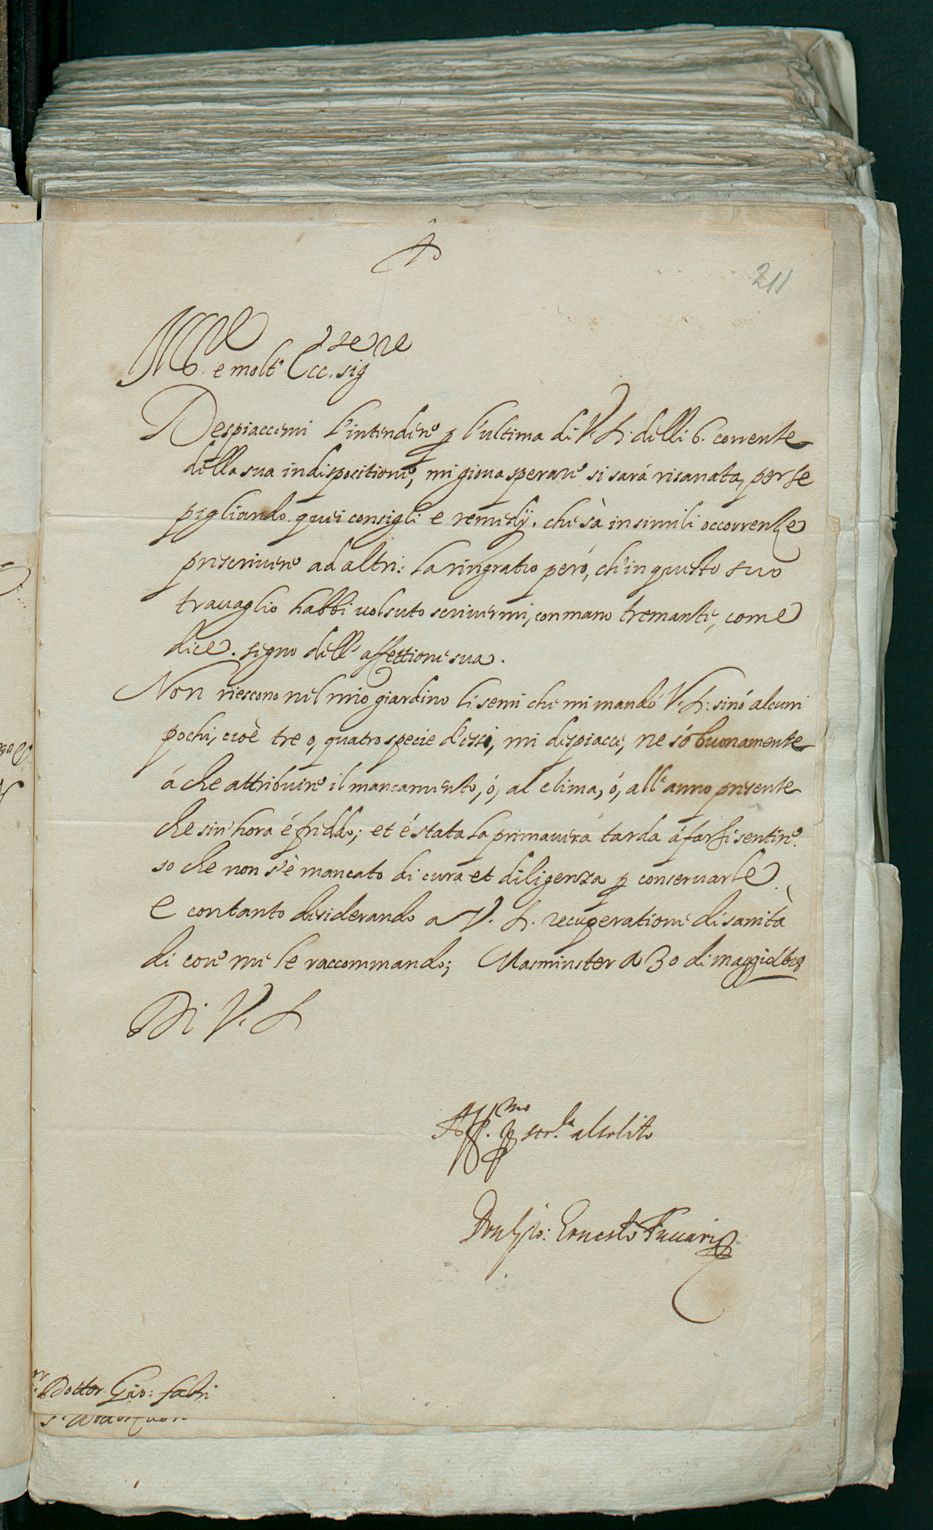 211
Ill.re e molt' Ecc.te sig.re
Despiaccemi l'intendere p l'ultima di V.S: delli 6. corrente
della sua indispositione, mi gioua sperare si sarà risanata, per se
pigliando quei consigli e remedij. che sà in simili occorrenze
prescriuere ad altri: la ringratio però, ch'in questo suo
trauaglio habbi uolsuto scriuermi, con mano tremante, come
dice. segno dell' affettione sua.
Non riescono nel mio giardino li semi che mi mandó V.S: sinó alcuni
pochi, cioè tre o, quatro specie d'essi, mi dispiacce, ne só buonamente
á che attribuire il mancamento, ó, al clima, ó, all'anno presente
che sin'hora é freddo; et é stata la primauera tarda á farsi sentire.
so che non s'è mancato di cura et diligenza p conseruarle.
E contanto desiderando a V. S. recuperatione di sanità
di core me le raccommando; Masminster a 30 di maggio
Di V. S
Aff.mo p ser.la al solito
Ernesto Fuccari
Dottor Gio: fabri